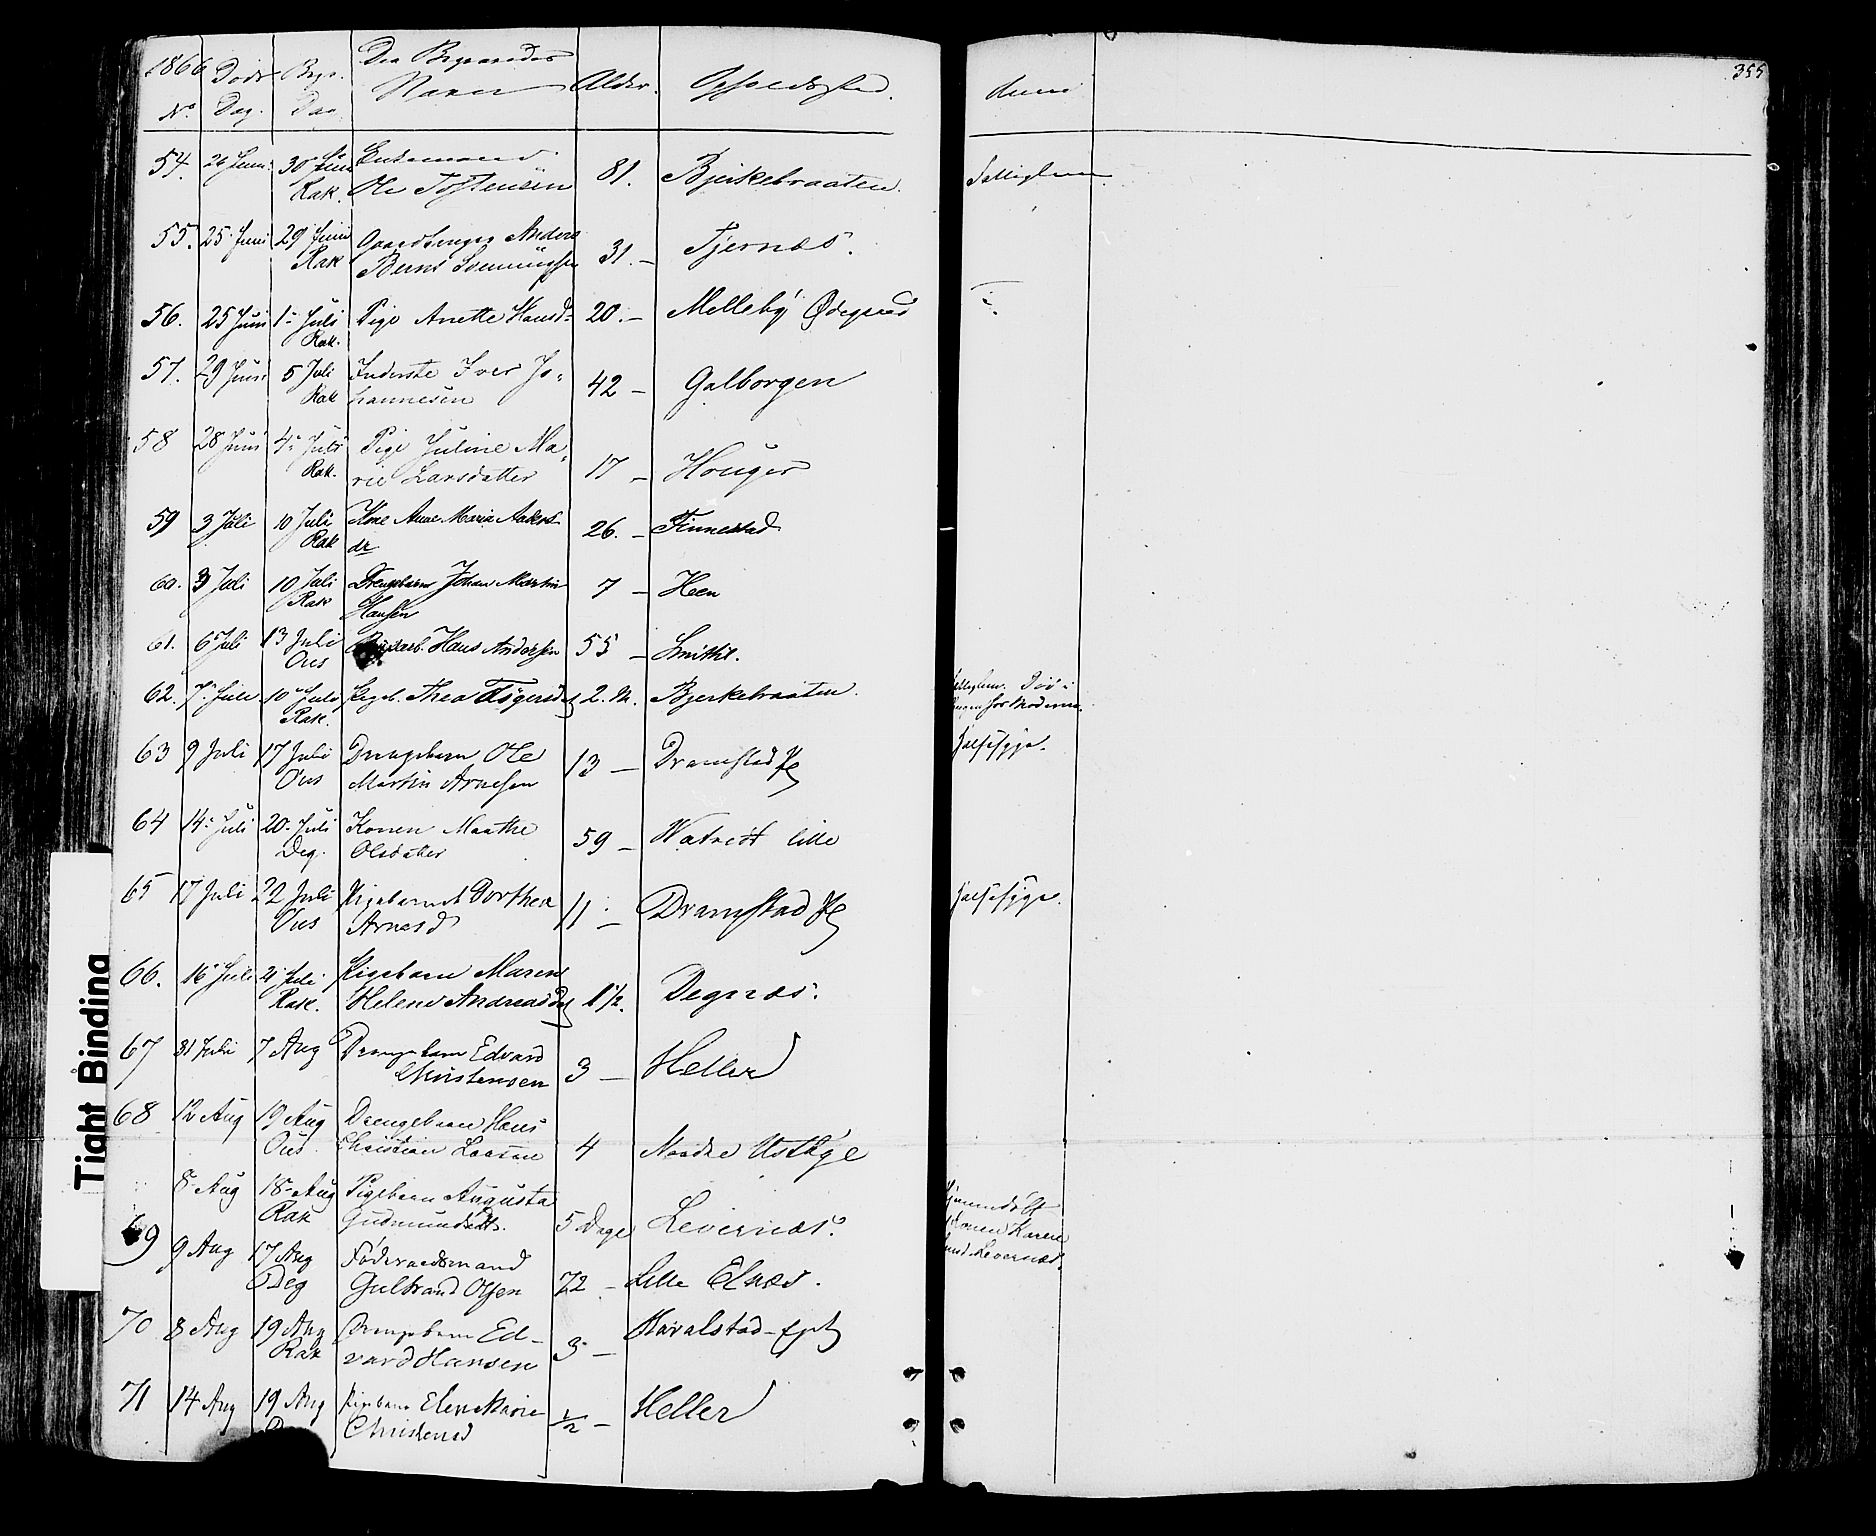 1866 Døds Begr. De Begravedes
No. Dag. Dag. Navne Alder. Opholdssted. Anm 355
54. 24 Juni 30 Juni
Rak. Ole Tostensen 81. Bjerkebraaten. Fattiglem
55. 25 Juni 29 Juni Anders
Rak Bernt Svenningsen 31. – Tjernæs.
56. 25 Juni 1 Juli Pige Anette Hansd. 20. – Melleby Ødegaard
Rak.
57. 29 Juni 5 Juli Inderste Iver Jo-
Rak hannesen 42 – Galborgen
58 28 Juni 4 Juli Pige Juline Ma-
Rak. rie Larsdatter 17 – Houger
59 3 Juli 10 Juli Kone Anne Maria Anders
Rak dr 26. – Finnestad
60. 3 Juli 10 Juli Drengebarn Johan Martin 7 – Heen
Rak Hansen
61. 6 Juli 13 Juli Hans Andersen 55 – Smithil.
Ous
62. 7 Juli 10 Juli Pigeb. Thea 2. M. Bjerkebraaten. Død i
Rak. for Moderen.
63 9 Juli 17 Juli Drengebarn Ole Halssyge.
Ous Martin Arnesen 13 – Dramstad
64 14 Juli 20 Juli Konen Marthe
Deg. Olsdatter 59 – Watvedt lille
65 17 Juli 22 Juli Pigebarnet Dorthea Halssyge.
Ous Arnesd 11 – Dramstad
66. 16 Juli 21 Juli Pigebarn Maren
Rak. Helene Andreasd 1 1/2. Degnæs.
67 31 Juli 7 Aug Drengebarn Edvard
Christensen 3 – Heller
68 12 Aug 19 Aug Drengebarn Hans
Ous. Christian Larsen 4 Nordre
8 Aug 18 Aug Pigebarn Augusta Hjemmedøbt
Rak Gudmundsdtr. 5 Dage Levernæs. Konen Karen
69 9 Aug 17 Aug Føderaadsmand Levernæs.
Deg Gulbrand Olsen 72 – Lille Elnæs.
70 8 Aug 19 Aug Drengebarn Ed-
Rak vard Hansen 3 –
71 14 Aug 19 Aug Pigebarn Elen Marie
Christensd 1/2 – Heller
Tight Binding